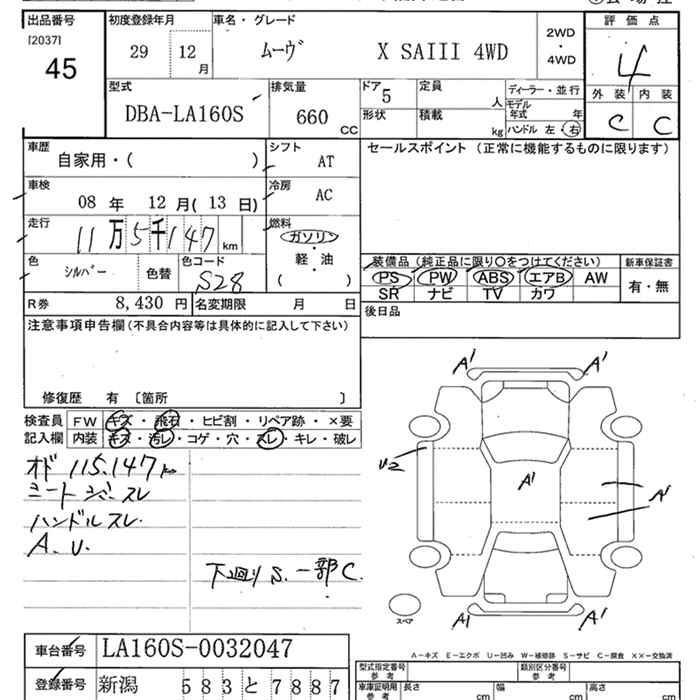 出品番号
[2037]
45
初度登録年月
29 12 月
車名・グレード
ムーヴ X SAIII 4WD
2WD
・
4WD
評価点
4
外装 内装
C C
型式
DBA-LA160S
排気量
660 CC
ドア
5
形状
定員
人
積載
kg
ディーラー・並行
モデル
年式 年
ハンドル 左・右
車歴
自家用・( )
シフト
AT
車検
08 年 12 月( 13 日)
冷房
AC
走行
11万5千147 km
燃料
ガソリン
軽・油
( )
色
シルバー
色替
色コード
S28
R券 8,430 円
名変期限 月 日
セールスポイント (正常に機能するものに限ります)
装備品 (純正品に限り○をつけてください)
PS PW ABS エアB AW
SR ナビ TV カワ
新車保証書
有・無
後日品
注意事項申告欄(不具合内容等は具体的に記入して下さい)
修復歴 有 〔箇所 〕
検査員
記入欄
FW キズ・飛石・ヒビ割・リペア跡・×要
内装 キズ・汚レ・コゲ・穴・スレ・キレ・破レ
オド 115.147km
シート シミ スレ
ハンドルスレ.
A.U.
下廻り S. 一部C.
A1 A1
U2
A1
A1
A1 A1
スペア
A-キズ E-エクボ U-凹み W-補修跡 S-サビ C-腐食 XX-交換済
車台番号 LA160S-0032047
登録番号 新潟 583 と 7887
型式指定番号
参考
類別区分番号
参考
車庫証明用
参考
長さ cm
幅 cm
高さ cm